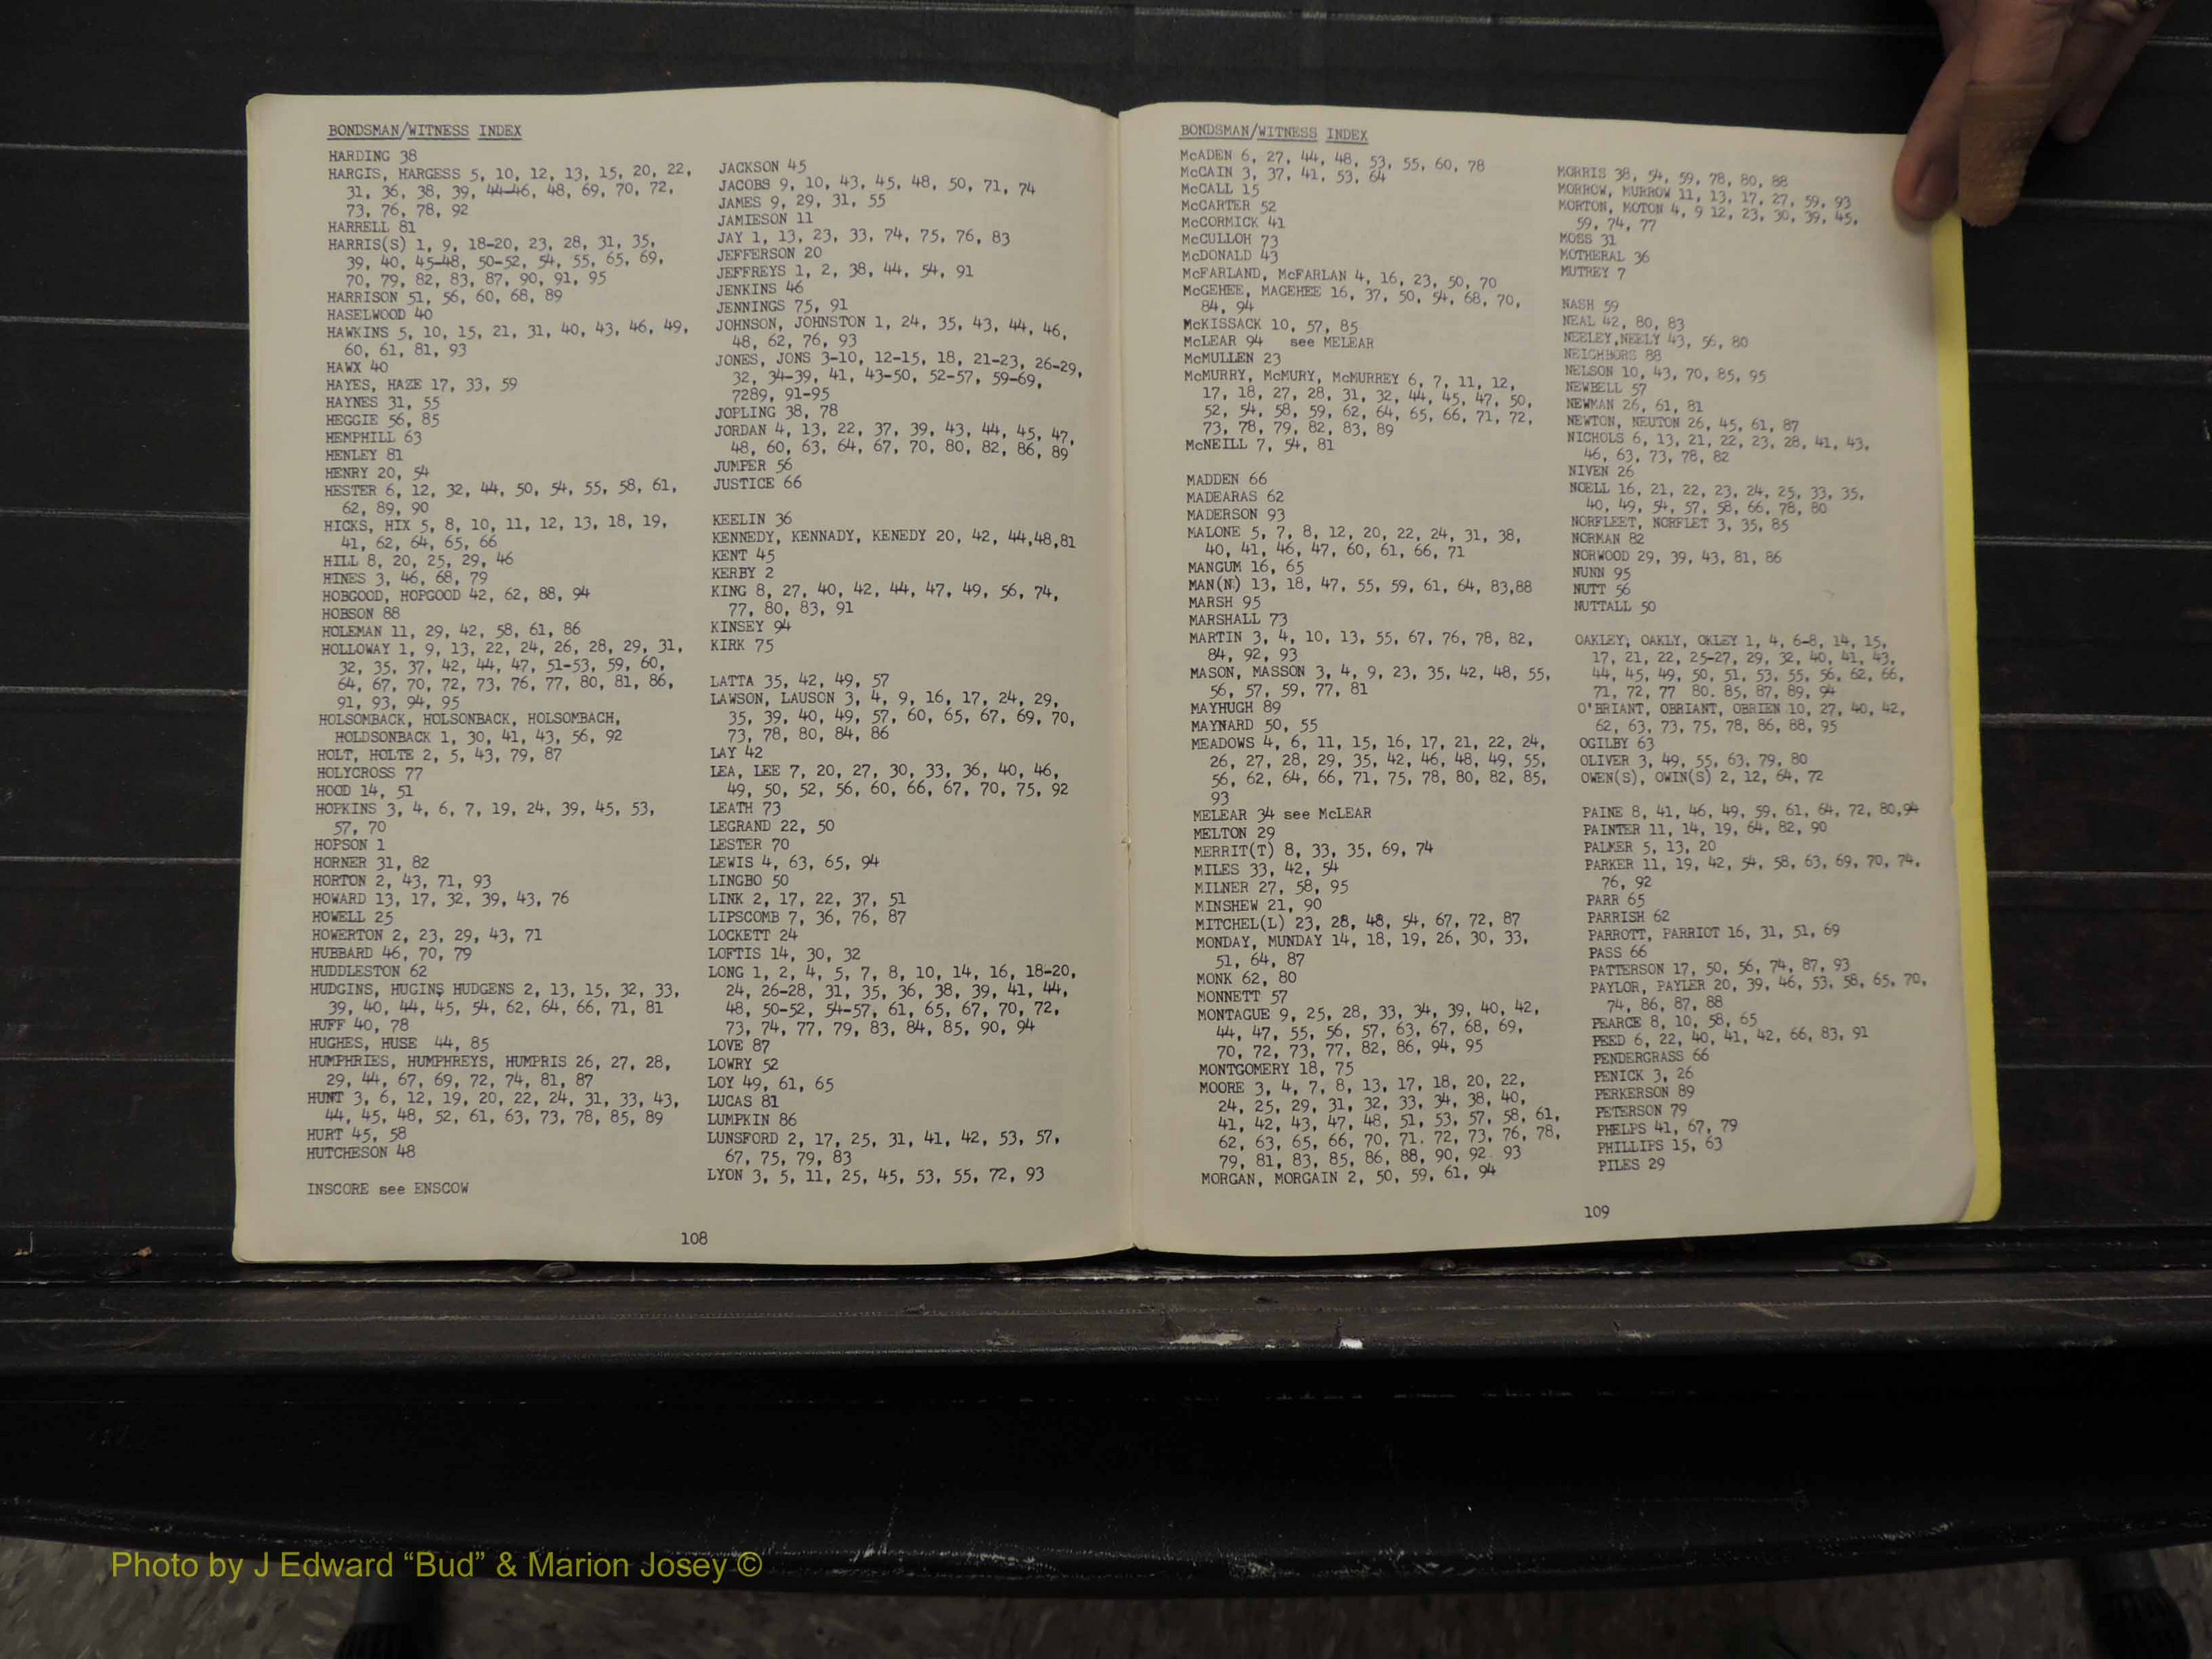 BONDSMAN/WITNESS INDEX
HARDING 38
HARGIS, HARGESS 5, 10, 12, 13, 15, 20, 22,
31, 36, 38, 39, 44-46, 48, 69, 70, 72,
73, 76, 78, 92
HARRELL 81
HARRIS(S) 1, 9, 18-20, 23, 28, 31, 35,
39, 40, 45-48, 50-52, 54, 55, 65, 69,
70, 79, 82, 83, 87, 90, 91, 95
HARRISON 51, 56, 60, 68, 89
HASELWOOD 40
HAWKINS 5, 10, 15, 21, 31, 40, 43, 46, 49,
60, 61, 81, 93
HAWX 40
HAYES, HAZE 17, 33, 59
HAYNES 31, 55
HEGGIE 56, 85
HEMPHILL 63
HENLEY 81
HENRY 20, 54
HESTER 6, 12, 32, 44, 50, 54, 55, 58, 61,
62, 89, 90
HICKS, HIX 5, 8, 10, 11, 12, 13, 18, 19,
41, 62, 64, 65, 66
HILL 8, 20, 25, 29, 46
HINES 3, 46, 68, 79
HOBGOOD, HOPGOOD 42, 62, 88, 94
HOBSON 88
HOLEMAN 11, 29, 42, 58, 61, 86
HOLLOWAY 1, 9, 13, 22, 24, 26, 28, 29, 31,
32, 35, 37, 42, 44, 47, 51-53, 59, 60,
64, 67, 70, 72, 73, 76, 77, 80, 81, 86,
91, 93, 94, 95
HOLSOMBACK, HOLSONBACK, HOLSOMBACH,
HOLDSONBACK 1, 30, 41, 43, 56, 92
HOLT, HOLTE 2, 5, 43, 79, 87
HOLYCROSS 77
HOOD 14, 51
HOPKINS 3, 4, 6, 7, 19, 24, 39, 45, 53,
57, 70
HOPSON 1
HORNER 31, 82
HORTON 2, 43, 71, 93
HOWARD 13, 17, 32, 39, 43, 76
HOWELL 25
HOWERTON 2, 23, 29, 43, 71
HUBBARD 46, 70, 79
HUDDLESTON 62
HUDGINS, HUGINS HUDGENS 2, 13, 15, 32, 33,
39, 40, 44, 45, 54, 62, 64, 66, 71, 81
HUFF 40, 78
HUGHES, HUSE 44, 85
HUMPHRIES, HUMPHREYS, HUMPRIS 26, 27, 28,
29, 44, 67, 69, 72, 74, 81, 87
HUNT 3, 6, 12, 19, 20, 22, 24, 31, 33, 43,
44, 45, 48, 52, 61, 63, 73, 78, 85, 89
HURT 45, 58
HUTCHESON 48
INSCORE see ENSCOW
JACKSON 45
JACOBS 9, 10, 43, 45, 48, 50, 71, 74
JAMES 9, 29, 31, 55
JAMIESON 11
JAY 1, 13, 23, 33, 74, 75, 76, 83
JEFFERSON 20
JEFFREYS 1, 2, 38, 44, 54, 91
JENKINS 46
JENNINGS 75, 91
JOHNSON, JOHNSTON 1, 24, 35, 43, 44, 46,
48, 62, 76, 93
JONES, JONS 3-10, 12-15, 18, 21-23, 26-29,
32, 34-39, 41, 43-50, 52-57, 59-69,
7289, 91-95
JOPLING 38, 78
JORDAN 4, 13, 22, 37, 39, 43, 44, 45, 47,
48, 60, 63, 64, 67, 70, 80, 82, 86, 89
JUMPER 56
JUSTICE 66
KEELIN 36
KENNEDY, KENNADY, KENEDY 20, 42, 44,48,81
KENT 45
KERBY 2
KING 8, 27, 40, 42, 44, 47, 49, 56, 74,
77, 80, 83, 91
KINSEY 94
KIRK 75
LATTA 35, 42, 49, 57
LAWSON, LAUSON 3, 4, 9, 16, 17, 24, 29,
35, 39, 40, 49, 57, 60, 65, 67, 69, 70,
73, 78, 80, 84, 86
LAY 42
LEA, LEE 7, 20, 27, 30, 33, 36, 40, 46,
49, 50, 52, 56, 60, 66, 67, 70, 75, 92
LEATH 73
LEGRAND 22, 50
LESTER 70
LEWIS 4, 63, 65, 94
LINGBO 50
LINK 2, 17, 22, 37, 51
LIPSCOMB 7, 36, 76, 87
LOCKETT 24
LOFTIS 14, 30, 32
LONG 1, 2, 4, 5, 7, 8, 10, 14, 16, 18-20,
24, 26-28, 31, 35, 36, 38, 39, 41, 44,
48, 50-52, 54-57, 61, 65, 67, 70, 72,
73, 74, 77, 79, 83, 84, 85, 90, 94
LOVE 87
LOWRY 52
LOY 49, 61, 65
LUCAS 81
LUMPKIN 86
LUNSFORD 2, 17, 25, 31, 41, 42, 53, 57,
67, 75, 79, 83
LYON 3, 5, 11, 25, 45, 53, 55, 72, 93
108
BONDSMAN/WITNESS INDEX
McADEN 6, 27, 44, 48, 53, 55, 60, 78
McCAIN 3, 37, 41, 53, 64
McCALL 15
McCARTER 52
McCORMICK 41
McCULLOH 73
McDONALD 43
McFARLAND, McFARLAN 4, 16, 23, 50, 70
McGEHEE, MAGEHEE 16, 37, 50, 54, 68, 70,
84, 94
McKISSACK 10, 57, 85
McLEAR 94 see MELEAR
McMULLEN 23
McMURRY, McMURY, McMURREY 6, 7, 11, 12,
17, 18, 27, 28, 31, 32, 44, 45, 47, 50,
52, 54, 58, 59, 62, 64, 65, 66, 71, 72,
73, 78, 79, 82, 83, 89
McNEILL 7, 54, 81
MADDEN 66
MADEARAS 62
MADERSON 93
MALONE 5, 7, 8, 12, 20, 22, 24, 31, 38,
40, 41, 46, 47, 60, 61, 66, 71
MANGUM 16, 65
MAN(N) 13, 18, 47, 55, 59, 61, 64, 83,88
MARSH 95
MARSHALL 73
MARTIN 3, 4, 10, 13, 55, 67, 76, 78, 82,
84, 92, 93
MASON, MASSON 3, 4, 9, 23, 35, 42, 48, 55,
56, 57, 59, 77, 81
MAYHUGH 89
MAYNARD 50, 55
MEADOWS 4, 6, 11, 15, 16, 17, 21, 22, 24,
26, 27, 28, 29, 35, 42, 46, 48, 49, 55,
56, 62, 64, 66, 71, 75, 78, 80, 82, 85,
93
MELEAR 34 see McLEAR
MELTON 29
MERRIT(T) 8, 33, 35, 69, 74
MILES 33, 42, 54
MILNER 27, 58, 95
MINSHEW 21, 90
MITCHEL(L) 23, 28, 48, 54, 67, 72, 87
MONDAY, MUNDAY 14, 18, 19, 26, 30, 33,
51, 64, 87
MONK 62, 80
MONNETT 57
MONTAGUE 9, 25, 28, 33, 34, 39, 40, 42,
44, 47, 55, 56, 57, 63, 67, 68, 69,
70, 72, 73, 77, 82, 86, 94, 95
MONTGOMERY 18, 75
MOORE 3, 4, 7, 8, 13, 17, 18, 20, 22,
24, 25, 29, 31, 32, 33, 34, 38, 40,
41, 42, 43, 47, 48, 51, 53, 57, 58, 61,
62, 63, 65, 66, 70, 71. 72, 73, 76, 78,
79, 81, 83, 85, 86, 88, 90, 92 93
MORGAN, MORGAIN 2, 50, 59, 61, 94
MORRIS 38, 54, 59, 78, 80, 88
MORROW, MURROW 11, 13, 17, 27, 59, 93
MORTON, MOTON 4, 9 12, 23, 30, 39, 45,
59, 74, 77
MOSS 31
MOTHERAL 36
MUTREY 7
NASH 59
NEAL 42, 80, 83
NEELEY,NEELY 43, 56, 80
NEIGHBORS 88
NELSON 10, 43, 70, 85, 95
NEWBELL 57
NEWMAN 26, 61, 81
NEWTON, NEUTON 26, 45, 61, 87
NICHOLS 6, 13, 21, 22, 23, 28, 41, 43,
46, 63, 73, 78, 82
NIVEN 26
NOELL 16, 21, 22, 23, 24, 25, 33, 35,
40, 49, 54, 57, 58, 66, 78, 80
NORFLEET, NORFLET 3, 35, 85
NORMAN 82
NORWOOD 29, 39, 43, 81, 86
NUNN 95
NUTT 56
NUTTALL 50
OAKLEY, OAKLY, OKLEY 1, 4, 6-8, 14, 15,
17, 21, 22, 25-27, 29, 32, 40, 41, 43,
44, 45, 49, 50, 51, 53, 55, 56, 62, 66,
71, 72, 77 80. 85, 87, 89, 94
O'BRIANT, OBRIANT, OBRIEN 10, 27, 40, 42,
62, 63, 73, 75, 78, 86, 88, 95
OGILBY 63
OLIVER 3, 49, 55, 63, 79, 80
OWEN(S), OWIN(S) 2, 12, 64, 72
PAINE 8, 41, 46, 49, 59, 61, 64, 72, 80,94
PAINTER 11, 14, 19, 64, 82, 90
PALMER 5, 13, 20
PARKER 11, 19, 42, 54, 58, 63, 69, 70, 74,
76, 92
PARR 65
PARRISH 62
PARROTT, PARRIOT 16, 31, 51, 69
PASS 66
PATTERSON 17, 50, 56, 74, 87, 93
PAYLOR, PAYLER 20, 39, 46, 53, 58, 65, 70,
74, 86, 87, 88
PEARCE 8, 10, 58, 65
PEED 6, 22, 40, 41, 42, 66, 83, 91
PENDERGRASS 66
PENICK 3, 26
PERKERSON 89
PETERSON 79
PHELPS 41, 67, 79
PHILLIPS 15, 63
PILES 29
109
Photo by J Edward “Bud” & Marion Josey ©